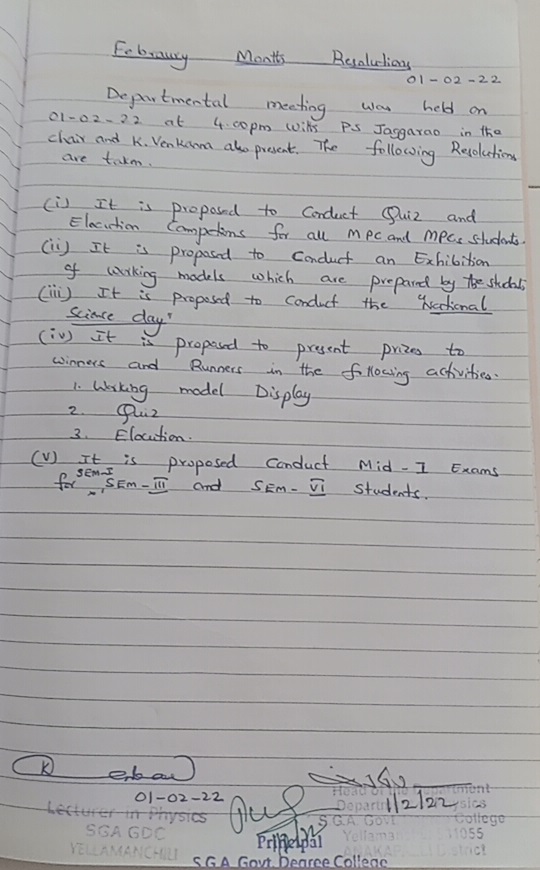 Febraury Months Resolutions
01-02-22
Departmental meeting was held on
01-02-22 at 4.00pm with P.S Jaggarao in the
chair and K. Venkanna also present. The following Resolutions
are taken.
(i) It is proposed to Conduct Quiz and
Elocution Competions for all MPC and MPCs students.
(ii) It is proposed to Conduct an Exhibition
of working models which are prepared by the students
(iii) It is proposed to Conduct the "National
Science day"
(iv) It is proposed to present prizes to
winners and Runners in the following activities.
1. Working model Display
2. Quiz
3. Elocution.
(V) It is proposed Conduct Mid-I Exams
SEM-I
for SEM-III and SEM-VI Students.
01-02-22
1/2/22
Lecturer in Physics
SGA GDC
YELLAMANCHILI
Head of the Department
Department Physics
S.G.A. Govt College
Yellama 31055
ANAKAPALLI District
Principal
S.G.A. Govt. Degree College